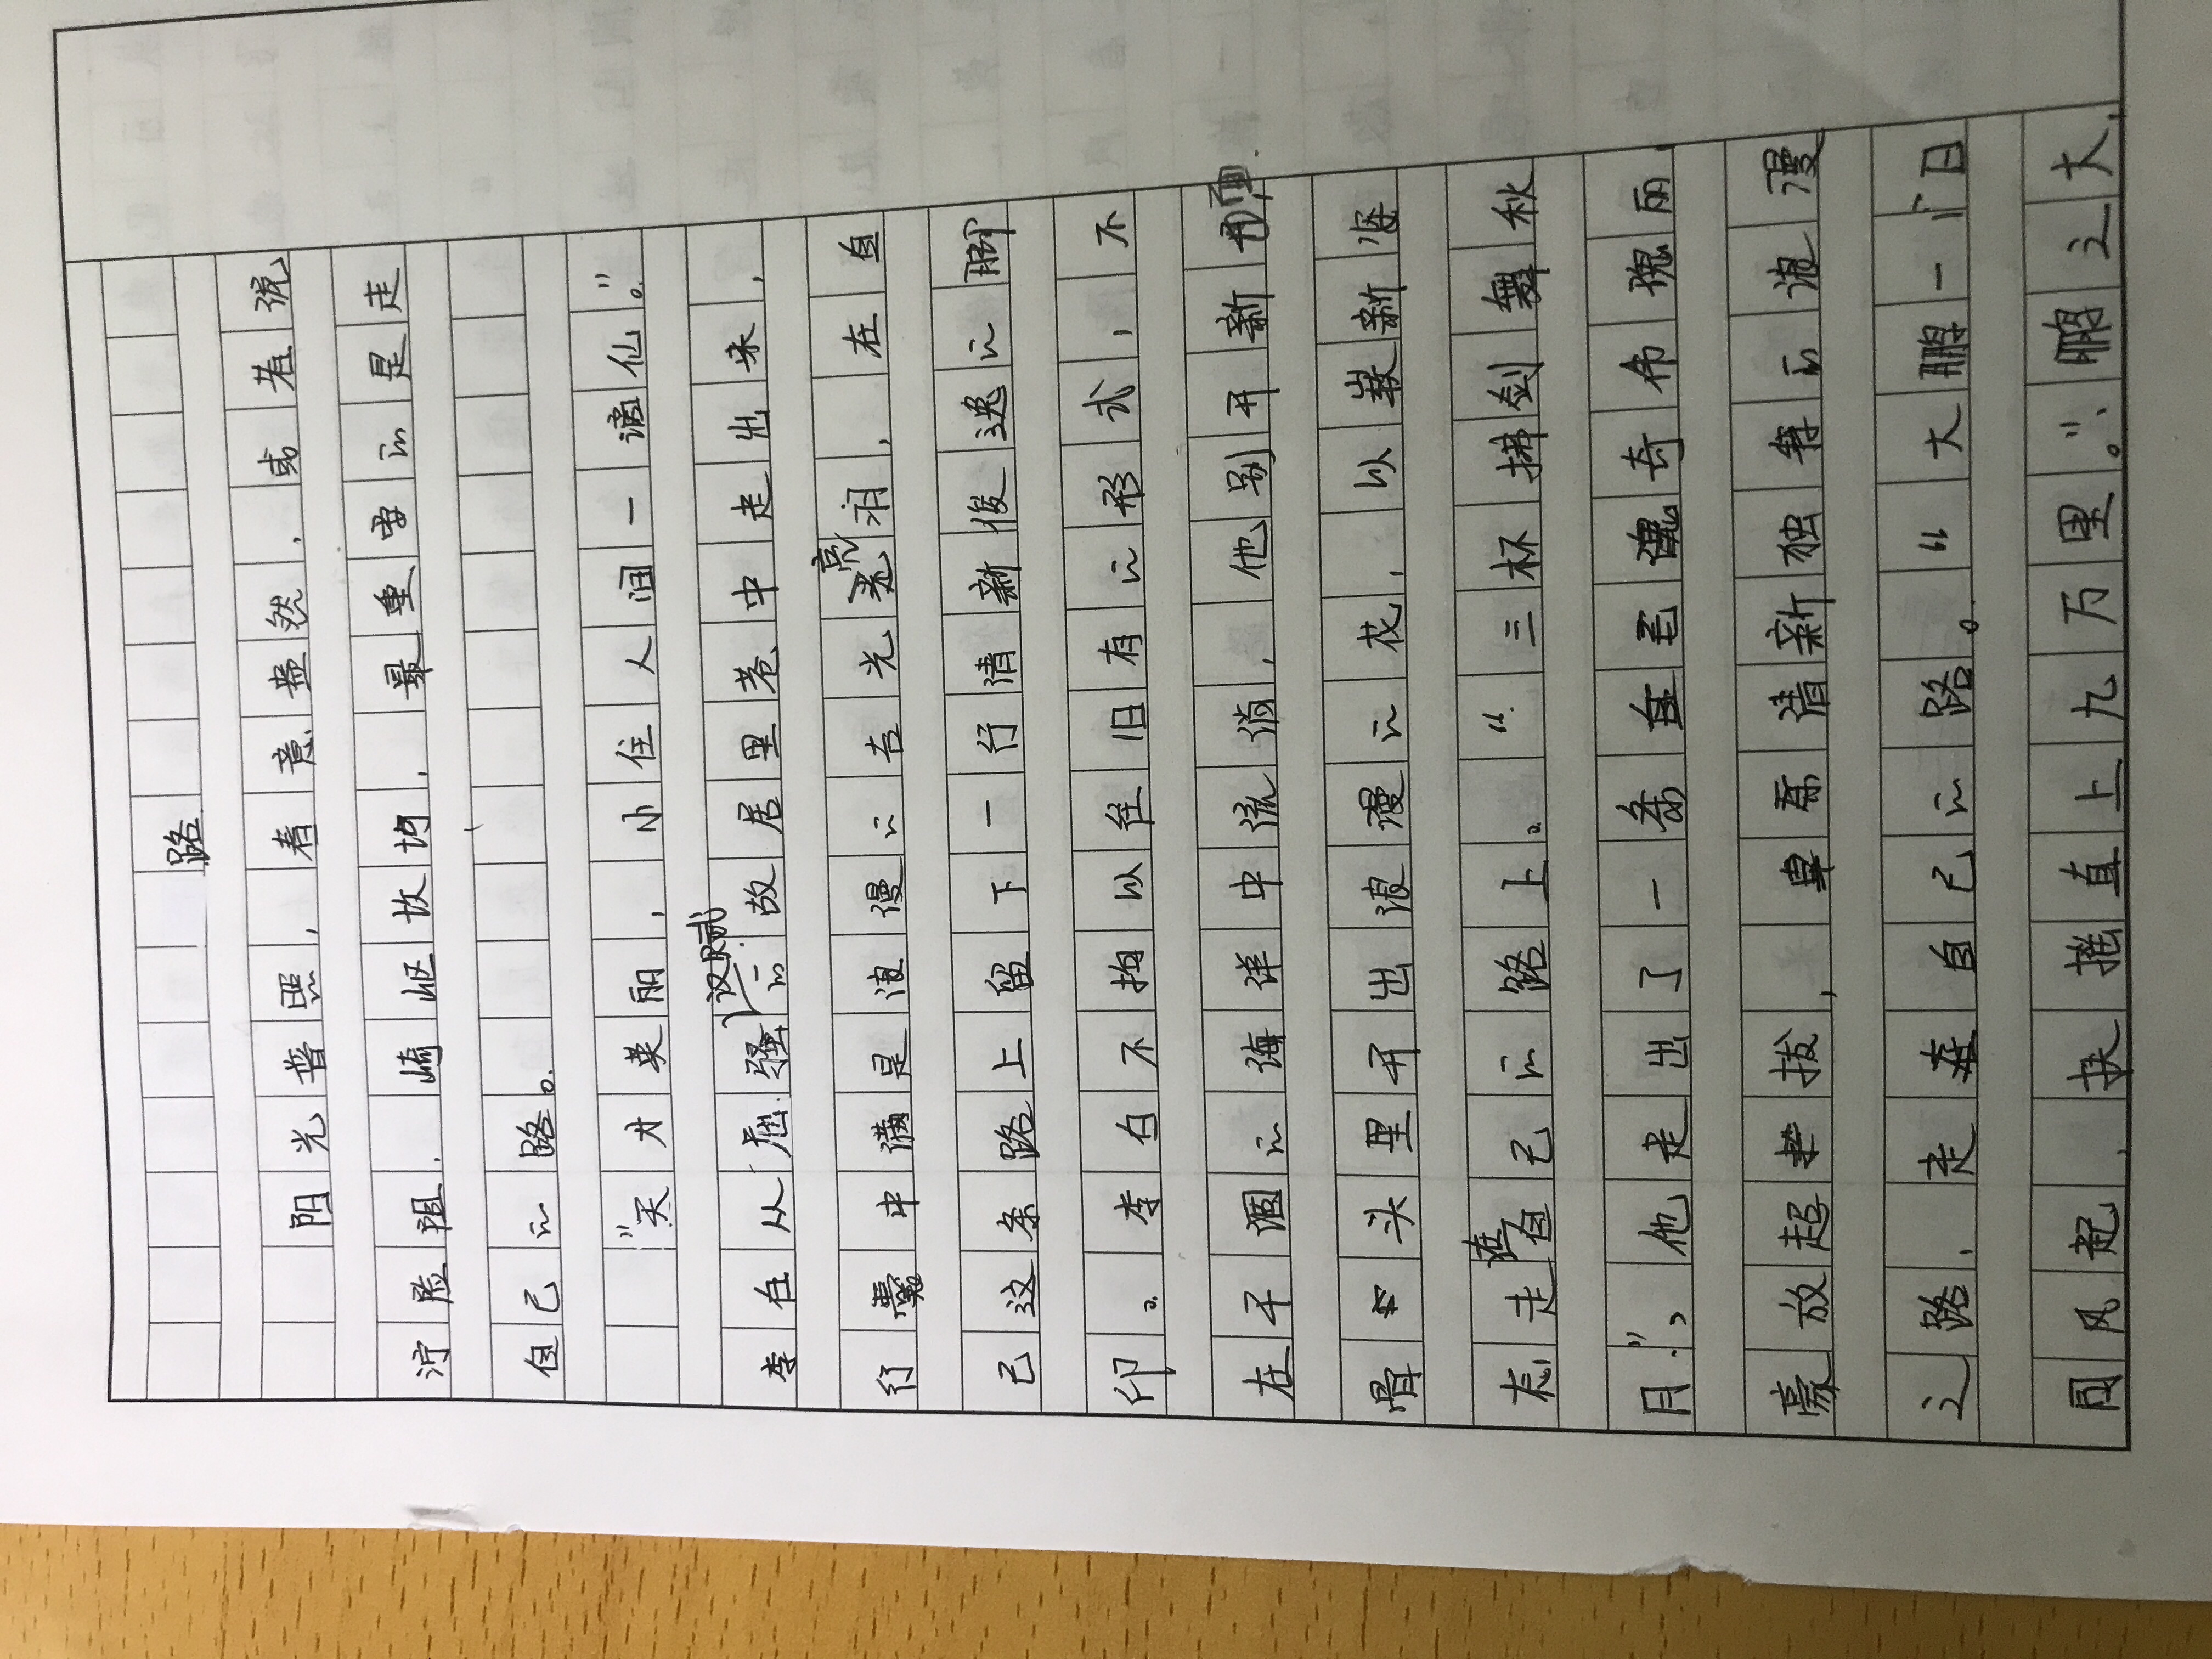 路
阳光普照，春意盎然，或者说
泞险阻，崎岖坎坷，最重要的是走
自己的路。
“天才英丽，小住人间一谪仙。”
李白从屈骚汉赋的故居里巷中走出来，
行囊中满是浪漫的吉光亮羽，在自
己这条路上留下一行清新俊逸的脚
印。李白不拘以往旧有的形式，不
在干涸的海洋中流淌，他别开新面，
骨头里开出浪漫的花，以崭新姿
态走在自己的路上。“三杯拂剑舞秋
月”，他走出了一条奇伟瑰丽，
豪放超拔，清新独特的浪漫
之路，走自己的路。“大鹏一日
同风起，扶摇直上九万里。”鹏之大，